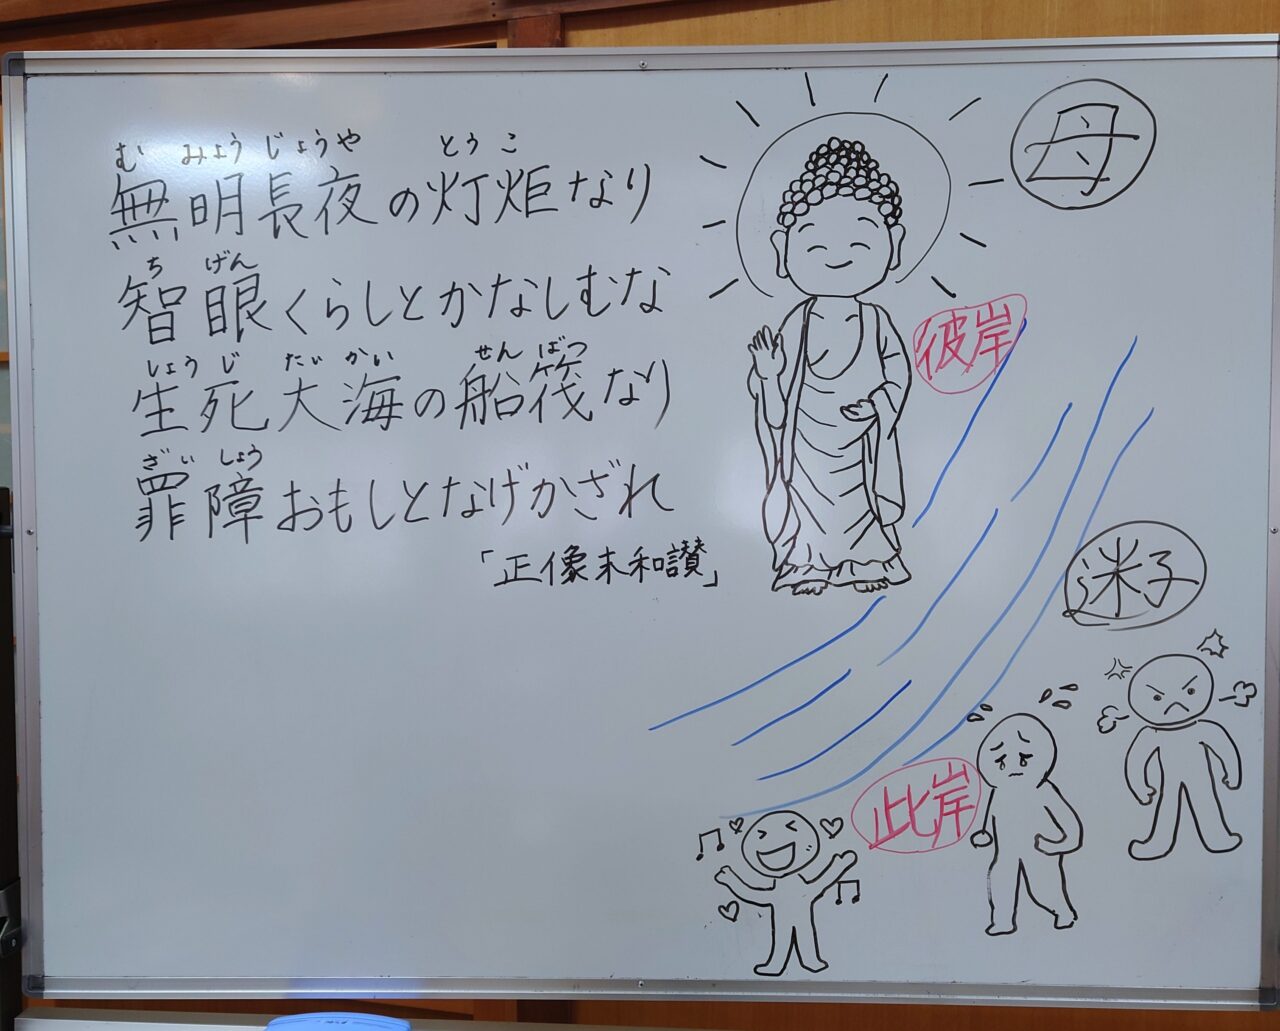 む みょう じょう や とう こ
無明長夜の灯炬なり
ち げん
智眼くらしとかなしむな
しょう じ だい かい せん ばつ
生死大海の船筏なり
ざい しょう
罪障おもしとなげかざれ
「正像末和讃」
母
彼岸
迷子
此岸